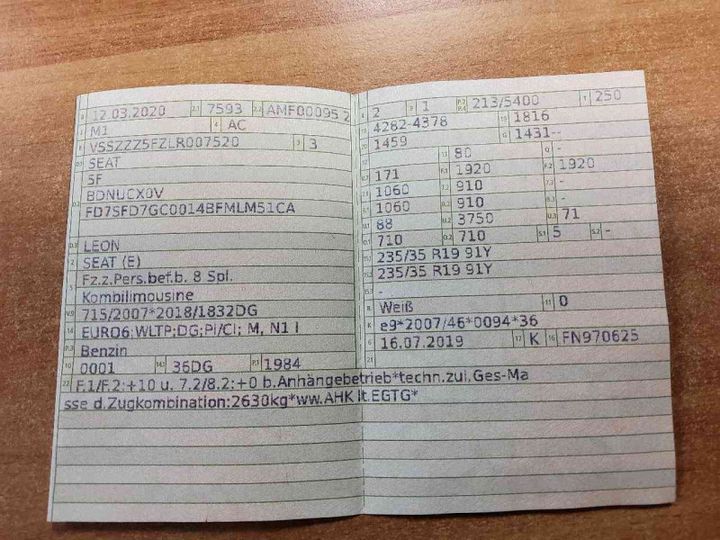 12.03.2020 7593 AMF00095 2
M1 AC
VSSZZZ5FZLR007520 3
SEAT
5F
BDNUCX0V
FD7SFD7GC0014BFMLM51CA
LEON
SEAT (E)
Fz.z.Pers.bef.b. 8 Spl.
Kombilimousine
715/2007*2018/1832DG
EURO6;WLTP;DG;PI/CI; M, N1 I
Benzin
0001 36DG 1984
F.1/F.2:+10 u. 7.2/8.2:+0 b.Anhängebetrieb*techn.zul.Ges-Ma
sse d.Zugkombination:2630kg*ww.AHK lt.EGTG*
2 1 213/5400 250
4282-4378 1816
1459 1431--
80 -
171 1920 1920
1060 910 -
1060 910 -
88 3750 71
710 710 5 -
235/35 R19 91Y
235/35 R19 91Y
-
Weiß 0
e9*2007/46*0094*36
16.07.2019 K FN970625